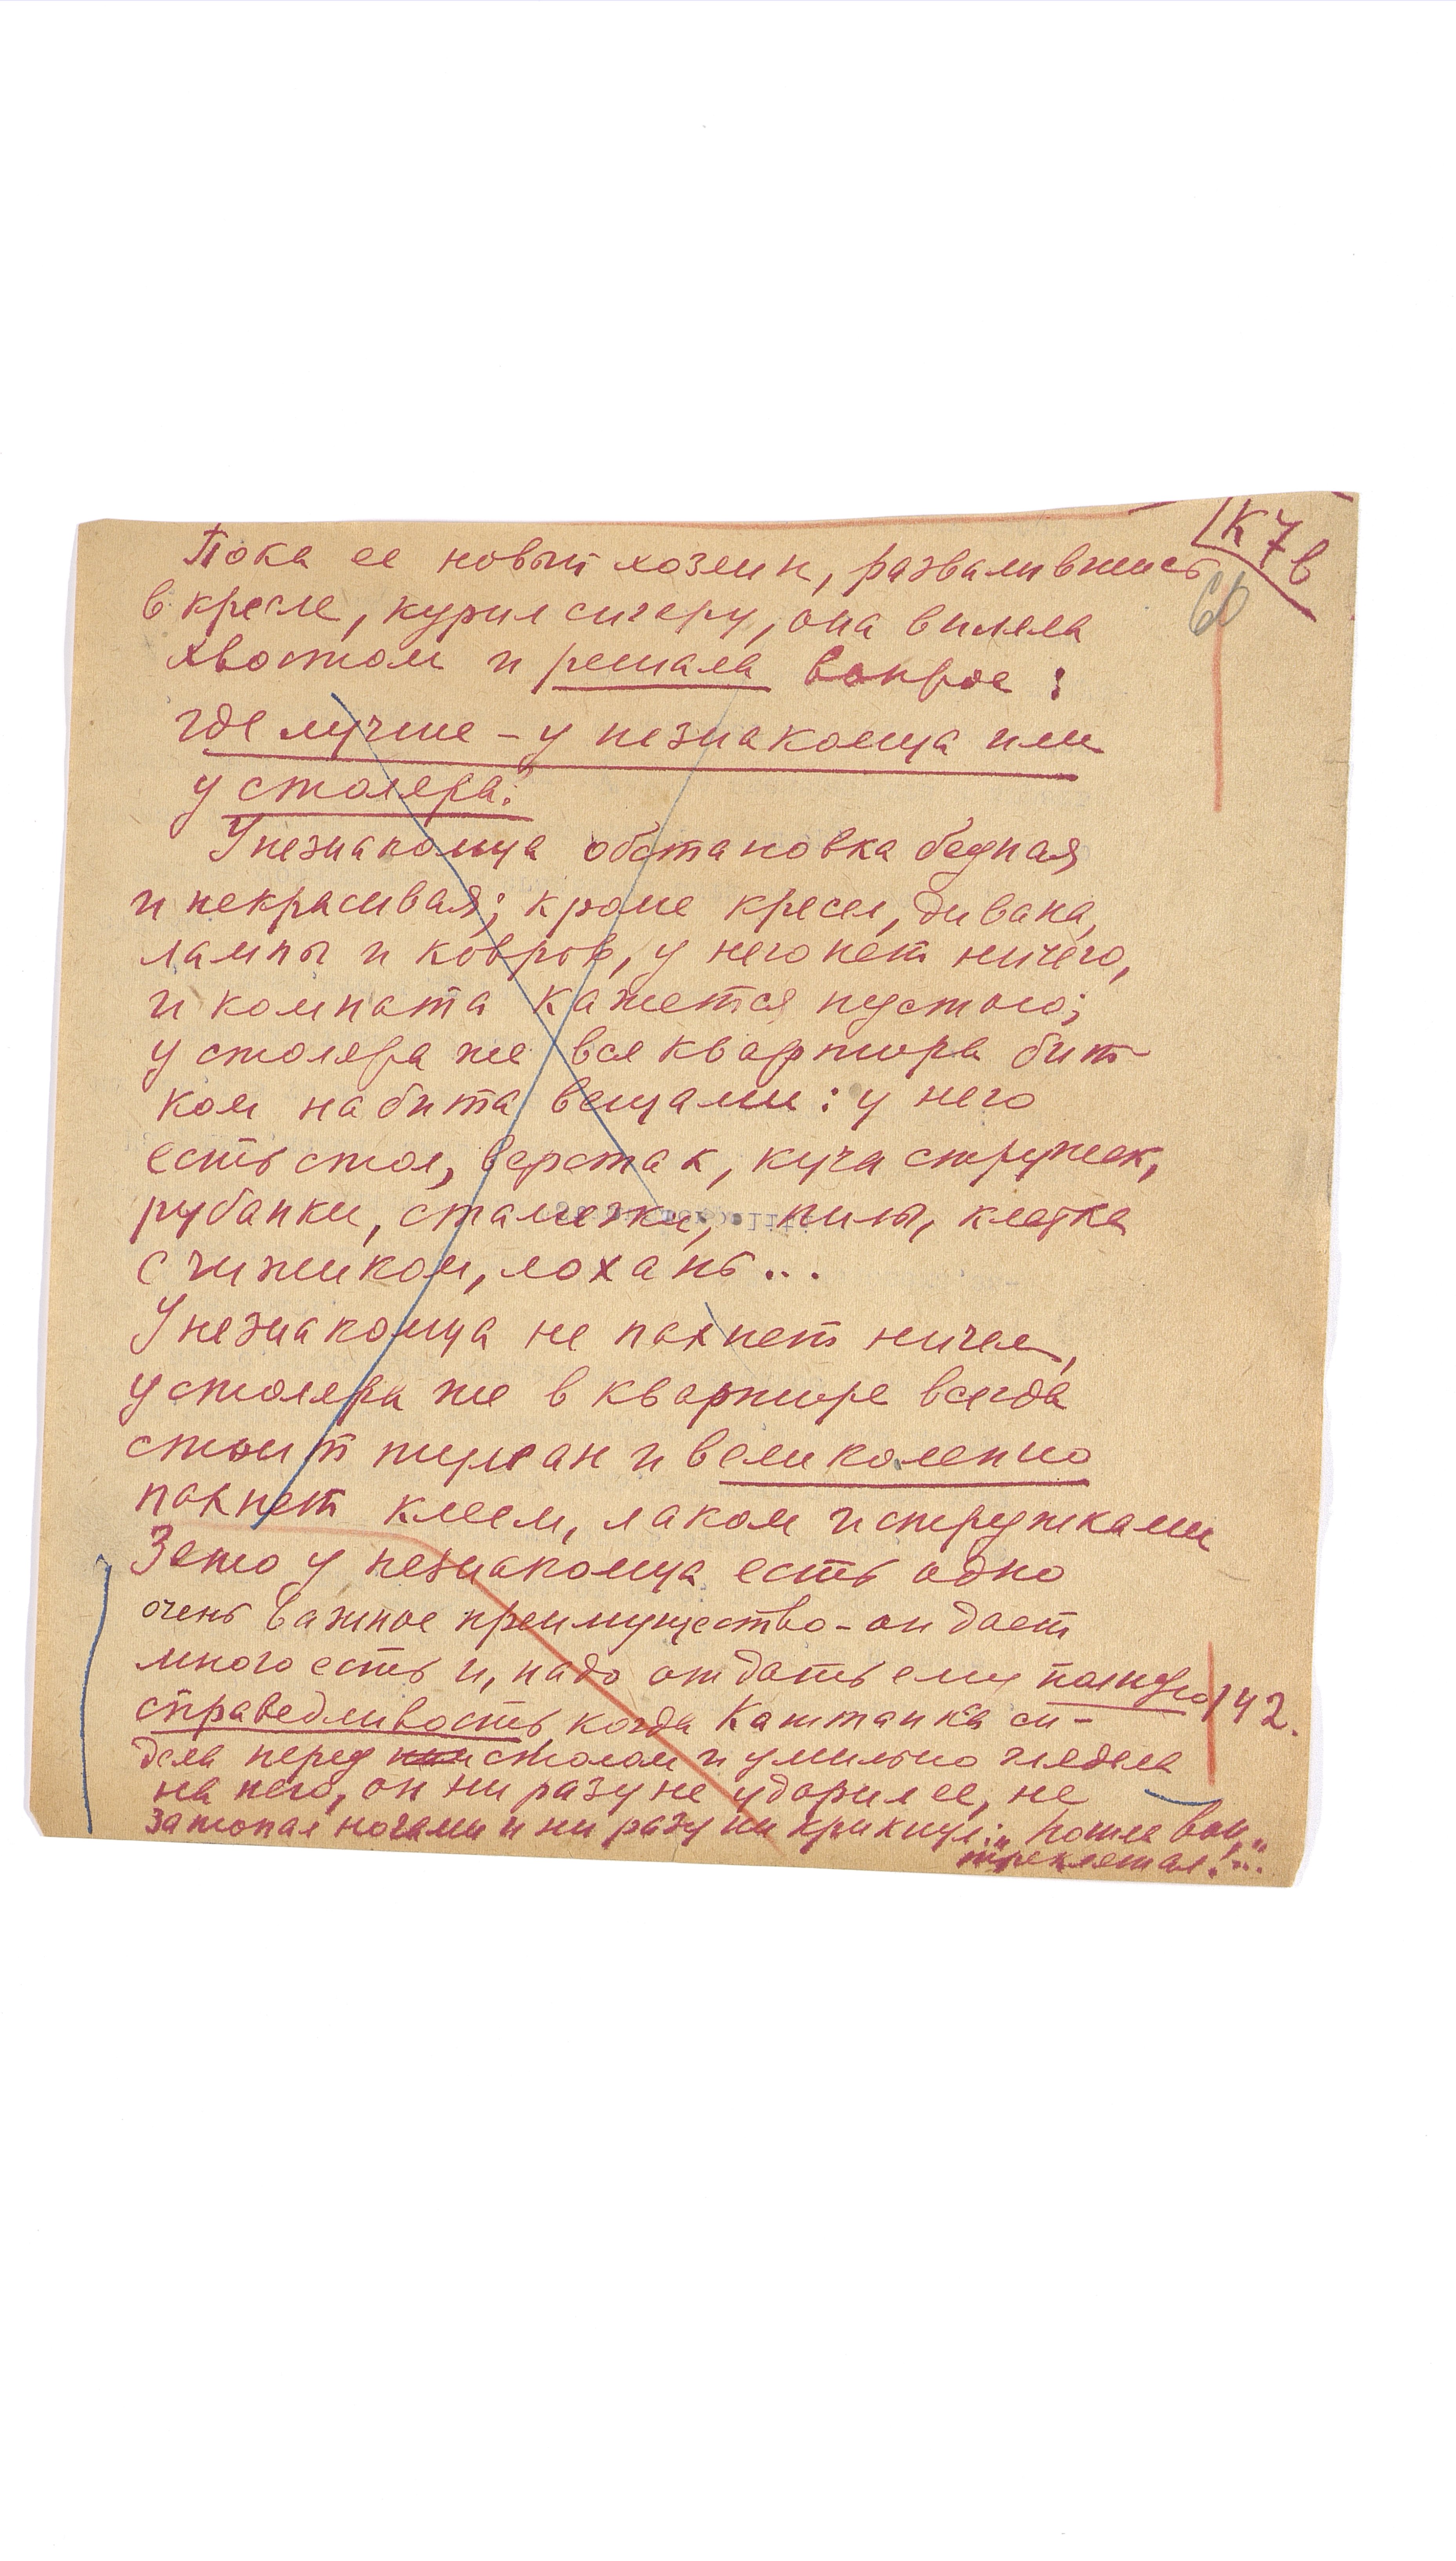 К 7 в
60
Пока ее новый хозяин, развалившись
в кресле, курил сигару, она виляла
хвостом и решала вопрос:
где лучше – у незнакомца или
у столяра?
У незнакомца обстановка бедная
и некрасивая; кроме кресел, дивана,
лампы и ковров, у него нет ничего,
и комната кажется пустою;
у столяра же вся квартира бит
ком набита вещами: у него
есть стол, верстак, куча стружек,
рубанки, стамезки, пилы, клетка
с чижиком, лохань...
У незнакомца не пахнет ничем,
у столяра же в квартире всегда
стоит туман и великолепно
пахнет клеем, лаком и стружками
Зато у незнакомца есть одно
очень важное преимущество – он дает
много есть и, надо отдать ему полную
142.
справедливость когда Каштанка си-
дела перед столом и умильно глядела
на него, он ни разу не ударил ее, не
затопал ногами и ни разу не крикнул: „Пошла вон,
треклятая!"...